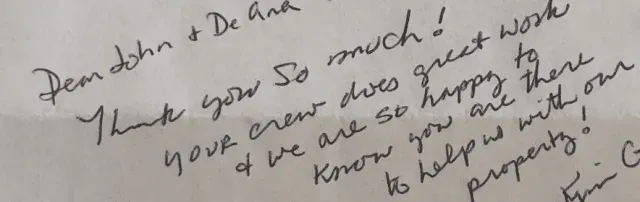 Dear John + De Ana
Thank you so much!
your crew does great work
+ we are so happy to
know you are there
to help us with our
property!